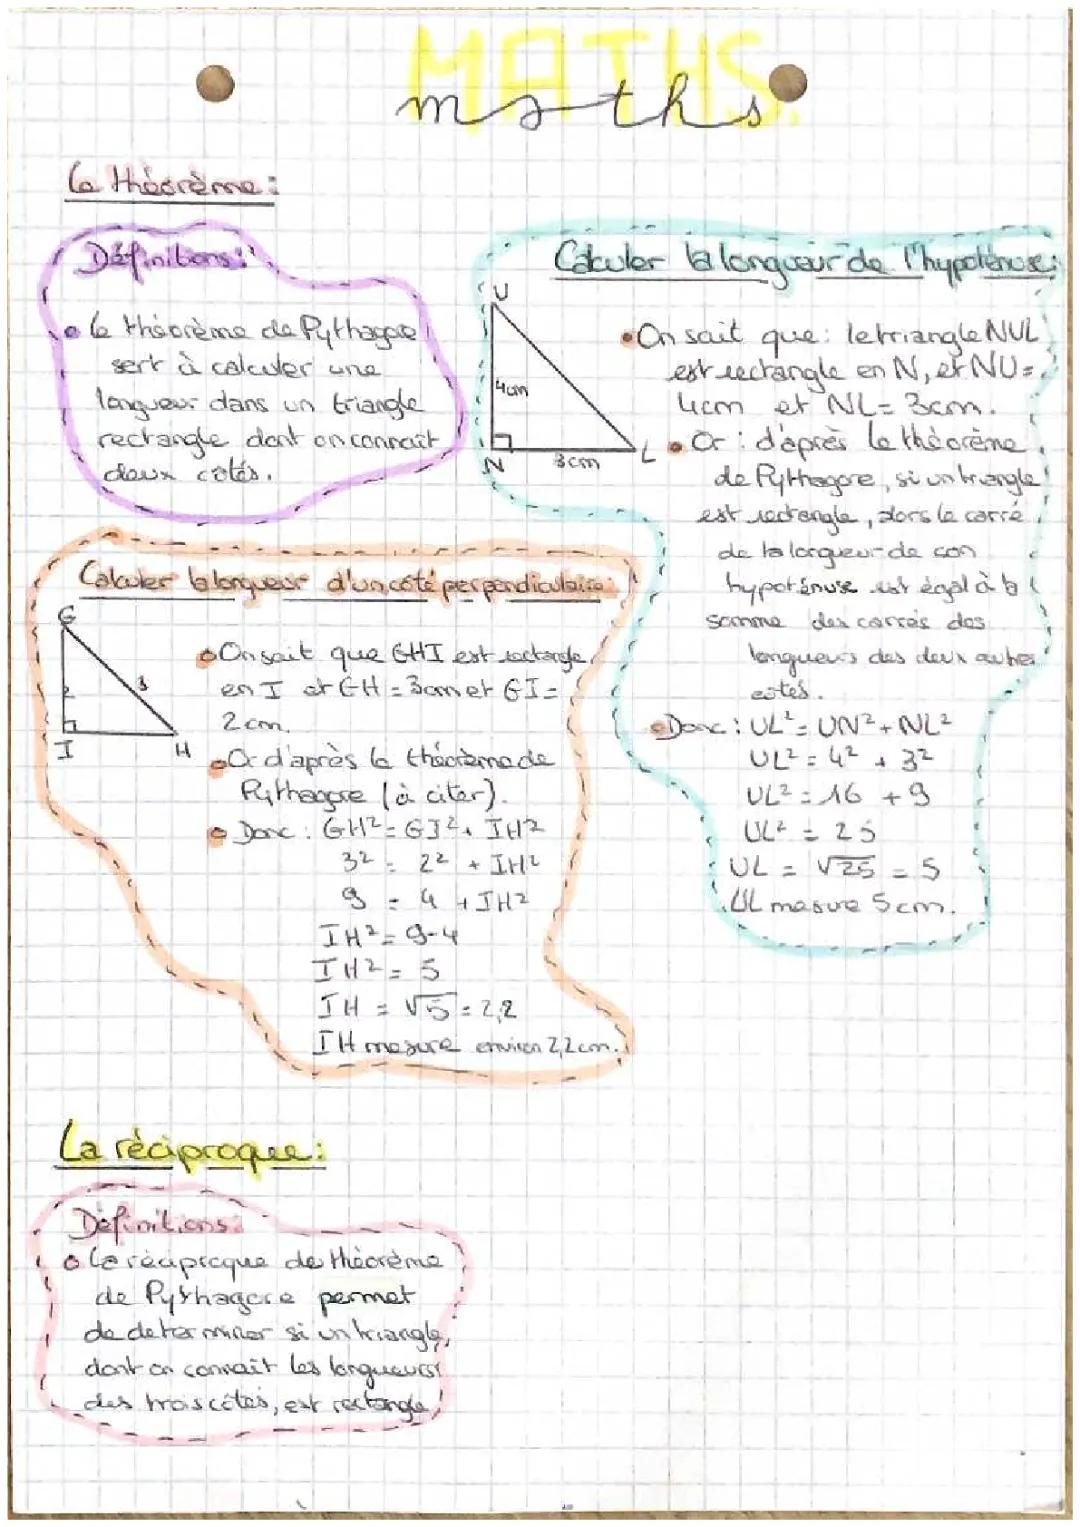 MATHS.
maths
Le théorème :
Définitions :
• le théorème de Pythagore
sert à calculer une
longueur dans un triangle
rectangle dont on connaît
deux côtés.
Calculer la longueur de l'hypoténuse :
U
4cm
N
3cm
L
• On sait que : le triangle NUL
est rectangle en N, et NU =
4cm et NL = 3cm.
• Or : d'après le théorème
de Pythagore, si un triangle
est rectangle, alors le carré
de la longueur de son
hypoténuse est égal à la
somme des carrés des
longueurs des deux autres
côtés.
• Donc : UL² = UN² + NL²
UL² = 4² + 3²
UL² = 16 + 9
UL² = 25
UL = √25 = 5
UL mesure 5cm.
Calculer la longueur d'un côté perpendiculaire :
G
2
3
I
H
• On sait que GHI est rectangle
en I et GH = 3cm et GI =
2cm.
• Or d'après le théorème de
Pythagore (à citer).
• Donc : GH² = GI² + IH²
3² = 2² + IH²
9 = 4 + IH²
IH² = 9-4
IH² = 5
IH = √5 = 2,2
IH mesure environ 2,2cm.
La réciproque :
Définitions :
• La réciproque de théorème
de Pythagore permet
de determiner si un triangle,
dont on connait les longueurs
des trois côtés, est rectangle